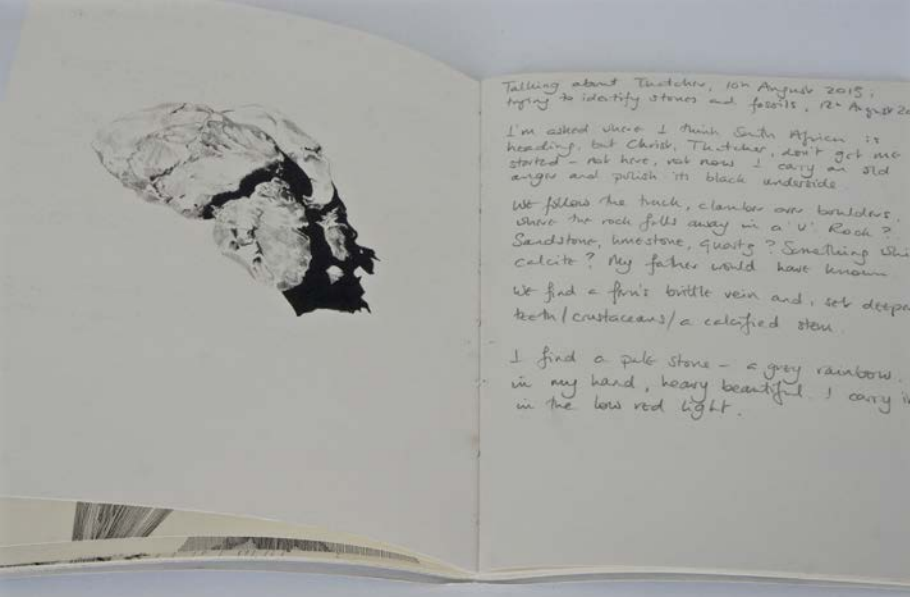 Talking about Thatcher, 10th August 2015,
trying to identify stones and fossils, 12th August 20
I'm asked where I think South Africa is
heading, but Christ, Thatcher, don't get me
started – not here, not now I carry an old
anger and polish its black underside.
We follow the track, clamber over boulders,
where the rock falls away in a 'V' Rock?
Sandstone, limestone, quartz? Something shi
calcite? My father would have known
We find a fern's brittle vein and, set deep
teeth/crustaceans/a calcified stem.
I find a pale stone – a grey rainbow.
in my hand, heavy beautiful. I carry i
in the low red light.